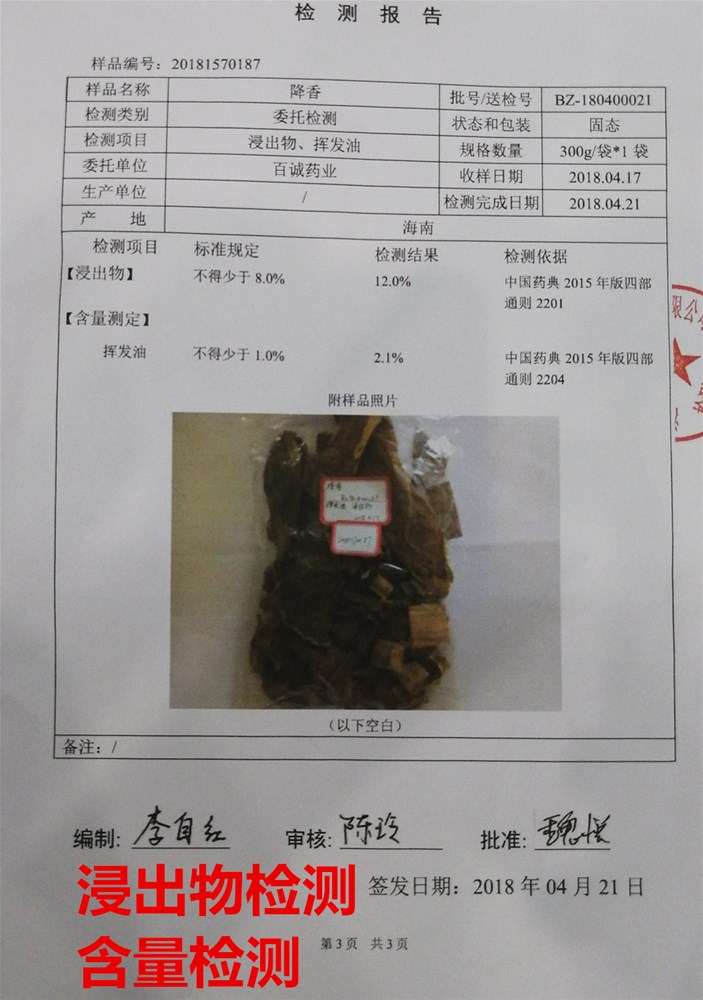 检测报告
样品编号：20181570187
样品名称 降香 批号/送检号 BZ-180400021
检测类别 委托检测 状态和包装 固态
检测项目 浸出物、挥发油 规格数量 300g/袋*1 袋
委托单位 百诚药业 收样日期 2018.04.17
生产单位 / 检测完成日期 2018.04.21
产 地 海南
检测项目 标准规定 检测结果 检测依据
【浸出物】 不得少于 8.0% 12.0% 中国药典 2015 年版四部
通则 2201
【含量测定】
挥发油 不得少于 1.0% 2.1% 中国药典 2015 年版四部
通则 2204
附样品照片
（以下空白）
备注：/
编制: 李自红 审核: 陈玲 批准:
签发日期：2018 年 04 月 21 日
浸出物检测
含量检测
第 3 页 共 3 页
限公